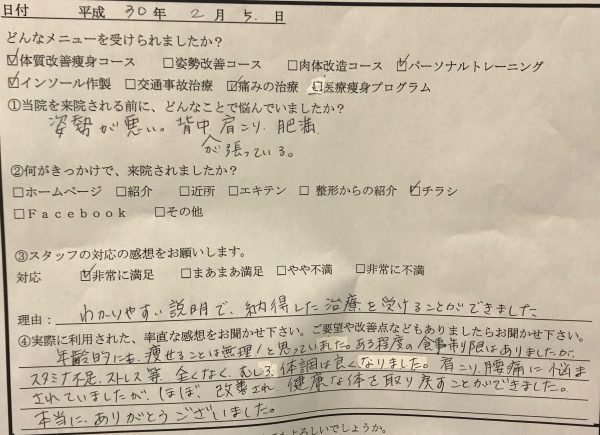 日付　平成 30 年 2 月 5. 日
どんなメニューを受けられましたか？
☑体質改善痩身コース　□姿勢改善コース　□肉体改造コース　☑パーソナルトレーニング
☑インソール作製　□交通事故治療　☑痛みの治療　□医療痩身プログラム
①当院を来院される前に、どんなことで悩んでいましたか？
姿勢が悪い。背中が張っている。肩こり. 肥満
②何がきっかけで、来院されましたか？
□ホームページ　□紹介　□近所　□エキテン　□ 整形からの紹介　☑チラシ
□Ｆａｃｅｂｏｏｋ　□その他
③スタッフの対応の感想をお願いします。
対応　☑非常に満足　□まあまあ満足　□やや不満　□非常に不満
理由：わかりやすい説明で、納得した治療を受けることができました
④実際に利用された、率直な感想をお聞かせ下さい。ご要望や改善点などもありましたらお聞かせ下さい。
年齢的にも、痩せることは無理！と思っていました。ある程度の食事制限はありましたが、
スタミナ不足、ストレス等、全くなく、むしろ、体調は良くなりました。肩こり、腰痛に悩ま
されていましたが、ほぼ、改善され、健康な体を取り戻すことができました。
本当に、ありがとうございました。
よろしいでしょうか。